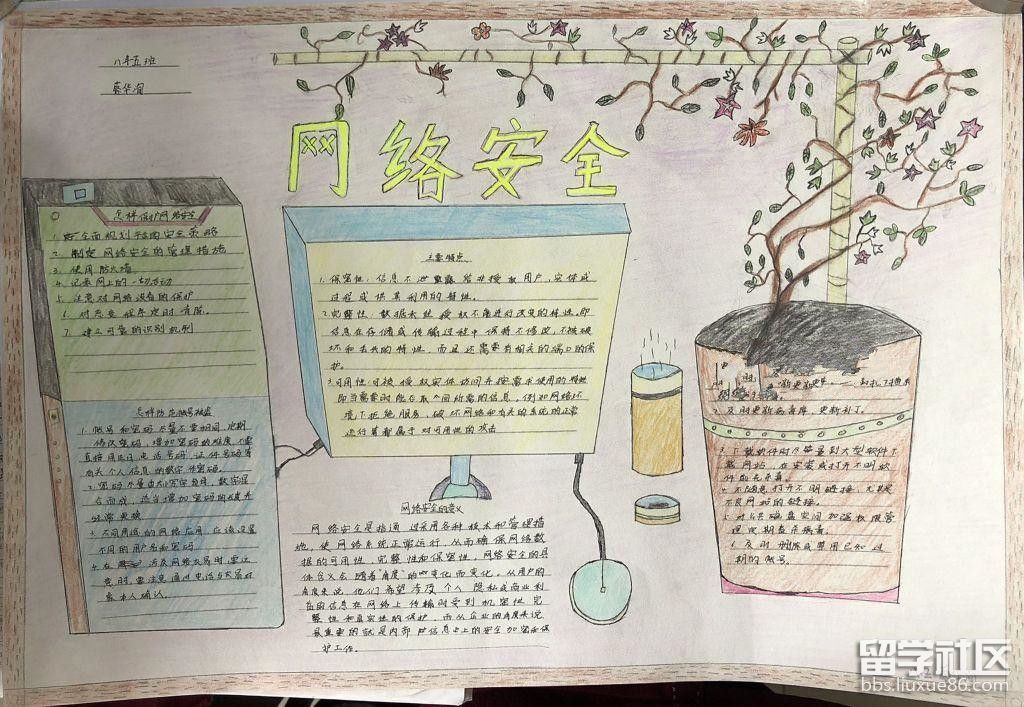 八年五班
网络安全
怎样保护网络安全
1. 全面规划网络安全策略
2. 制定网络安全的管理措施
3. 使用防火墙
4. 记录网上的一切活动
5. 注意对网络设备的保护
6. 对
7. 建立可靠的识别机制
怎样防范账号被盗
1. 账号和密码尽量不要相同,定期
修改密码,增加密码的难度,不要
直接用生日,电话号码,证件号码等
有关个人信息的数字作密码。
2. 密码尽量由大小写字母,数字混
合而成,适当增加密码的长度并
经常更换
3. 不同用途的网络应用,应该设置
不同的用户名和密码。
4. 在涉及网络交易时,要注
意
本人确认。
主要特点
1. 保密性:信息不泄露给非授权用户,实体或
过程或供其利用的特性。
2. 完整性:数据未经授权不能进行改变的特性。即
信息在存储或传输过程中保持不修改,不被破
坏和丢失的特性,
3. 可用性:可被授权实体访问并按需求使用的特性
即当需要时能否存取所需的信息,例如网络环
境下拒绝服务,破坏网络和有关的系统的正常
运行等都属于对可用性的攻击
网络安全的意义
网络安全是指通过采用各种技术和管理措
施,使网络系统正常运行,从而确保网络数
据的可用性,完整性和保密性,网络安全的具
体含义会随着"角度"的变化而变化。从用户的
角度来说,他们希望涉及个人隐私或商业利
益的信息在网络上传输时受到机密性完
整性和真实性的保护,而从企业的角度来说
最重要的就是内部信息上的安全加密和保
护工作。
2. 及时更新病毒库,更新补丁。
3. 下载软件时尽量到大型软件下
载网站,在安装或打开不明软
件前先杀毒。
4. 不随意打开不明链接,尤其是
不良网站的链接。
5. 对公共磁盘空间加强权限管
理定期查杀病毒。
6. 及时删除或禁用已知过
期的账号。
留学社区
bbs.liuxue86.com